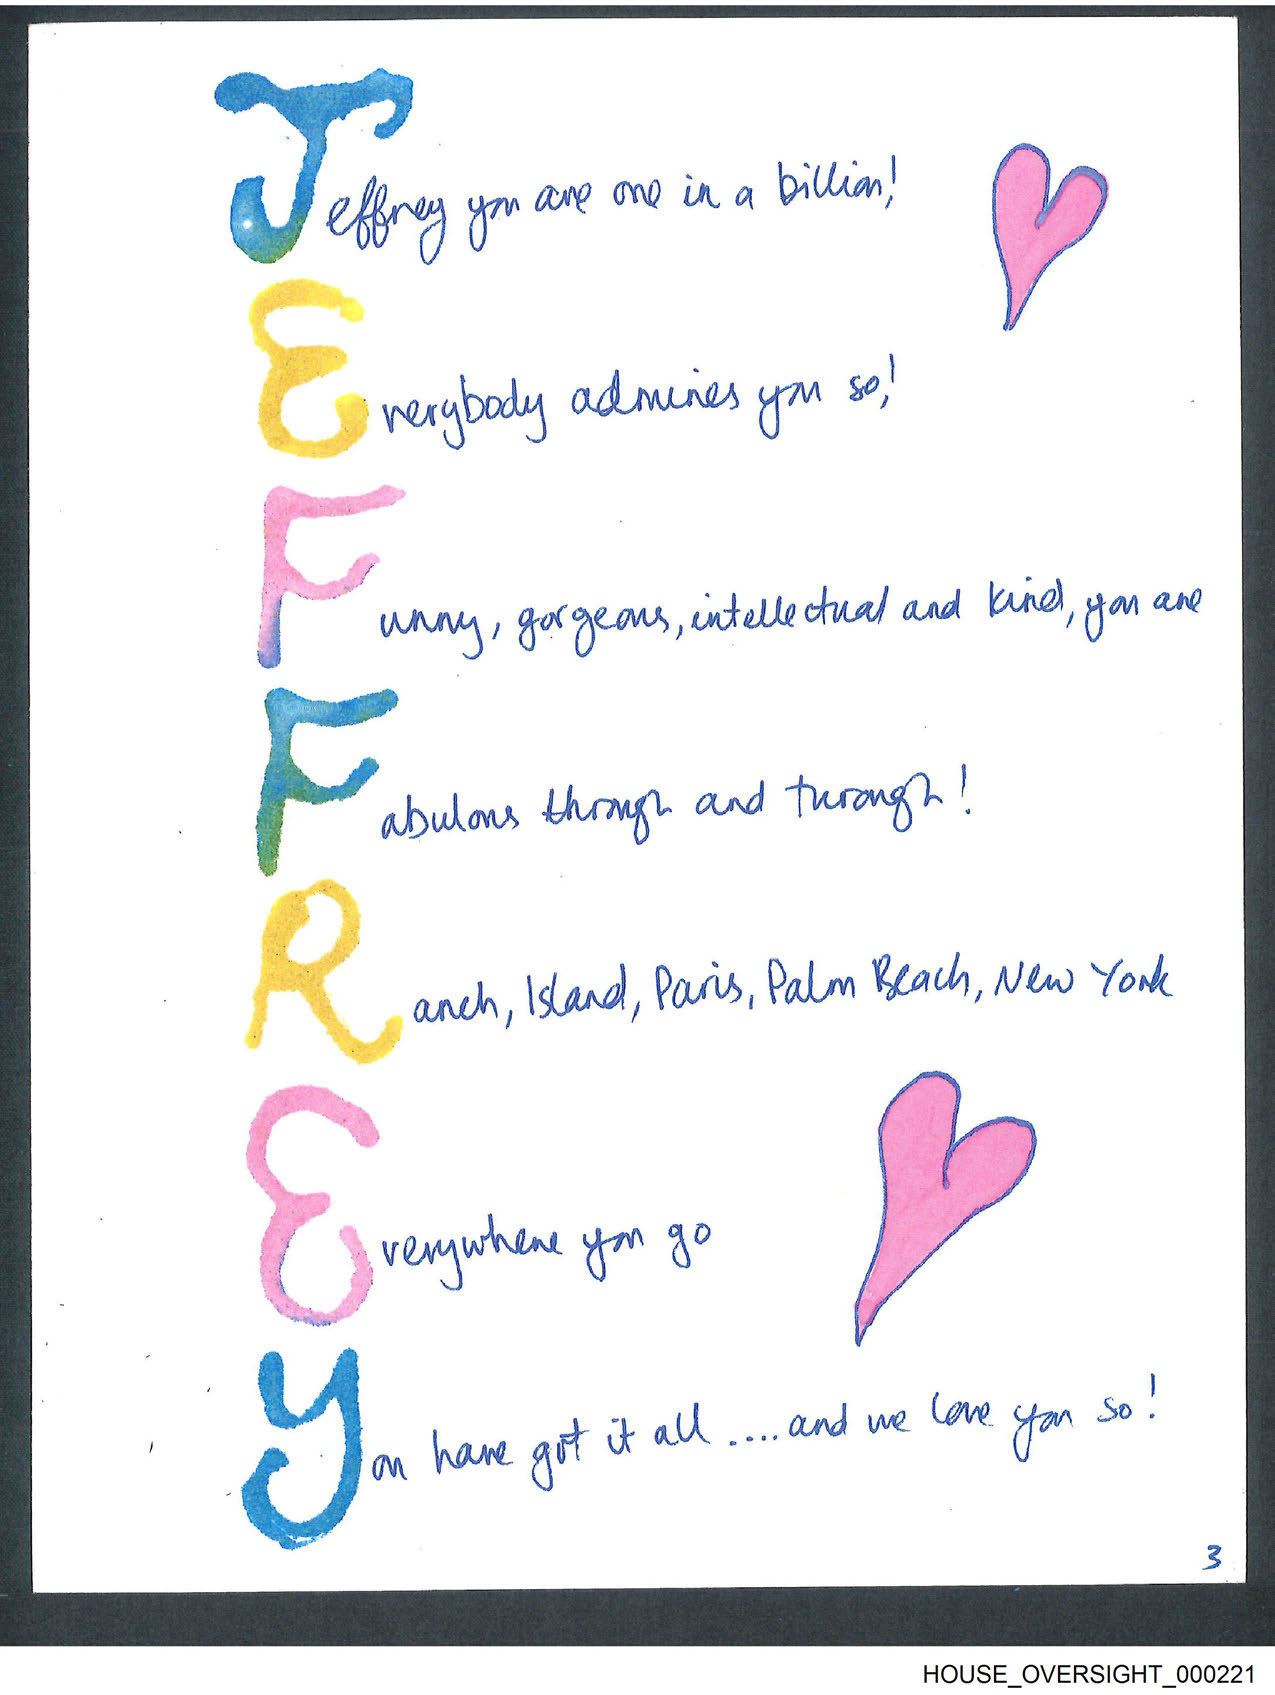 Jeffrey you are one in a billion!
Everybody admires you so!
Funny, gorgeous, intellectual and kind, you are
Fabulous through and through!
Ranch, Island, Paris, Palm Beach, New York
Everywhere you go
You have got it all ....and we love you so!
3
HOUSE_OVERSIGHT_000221